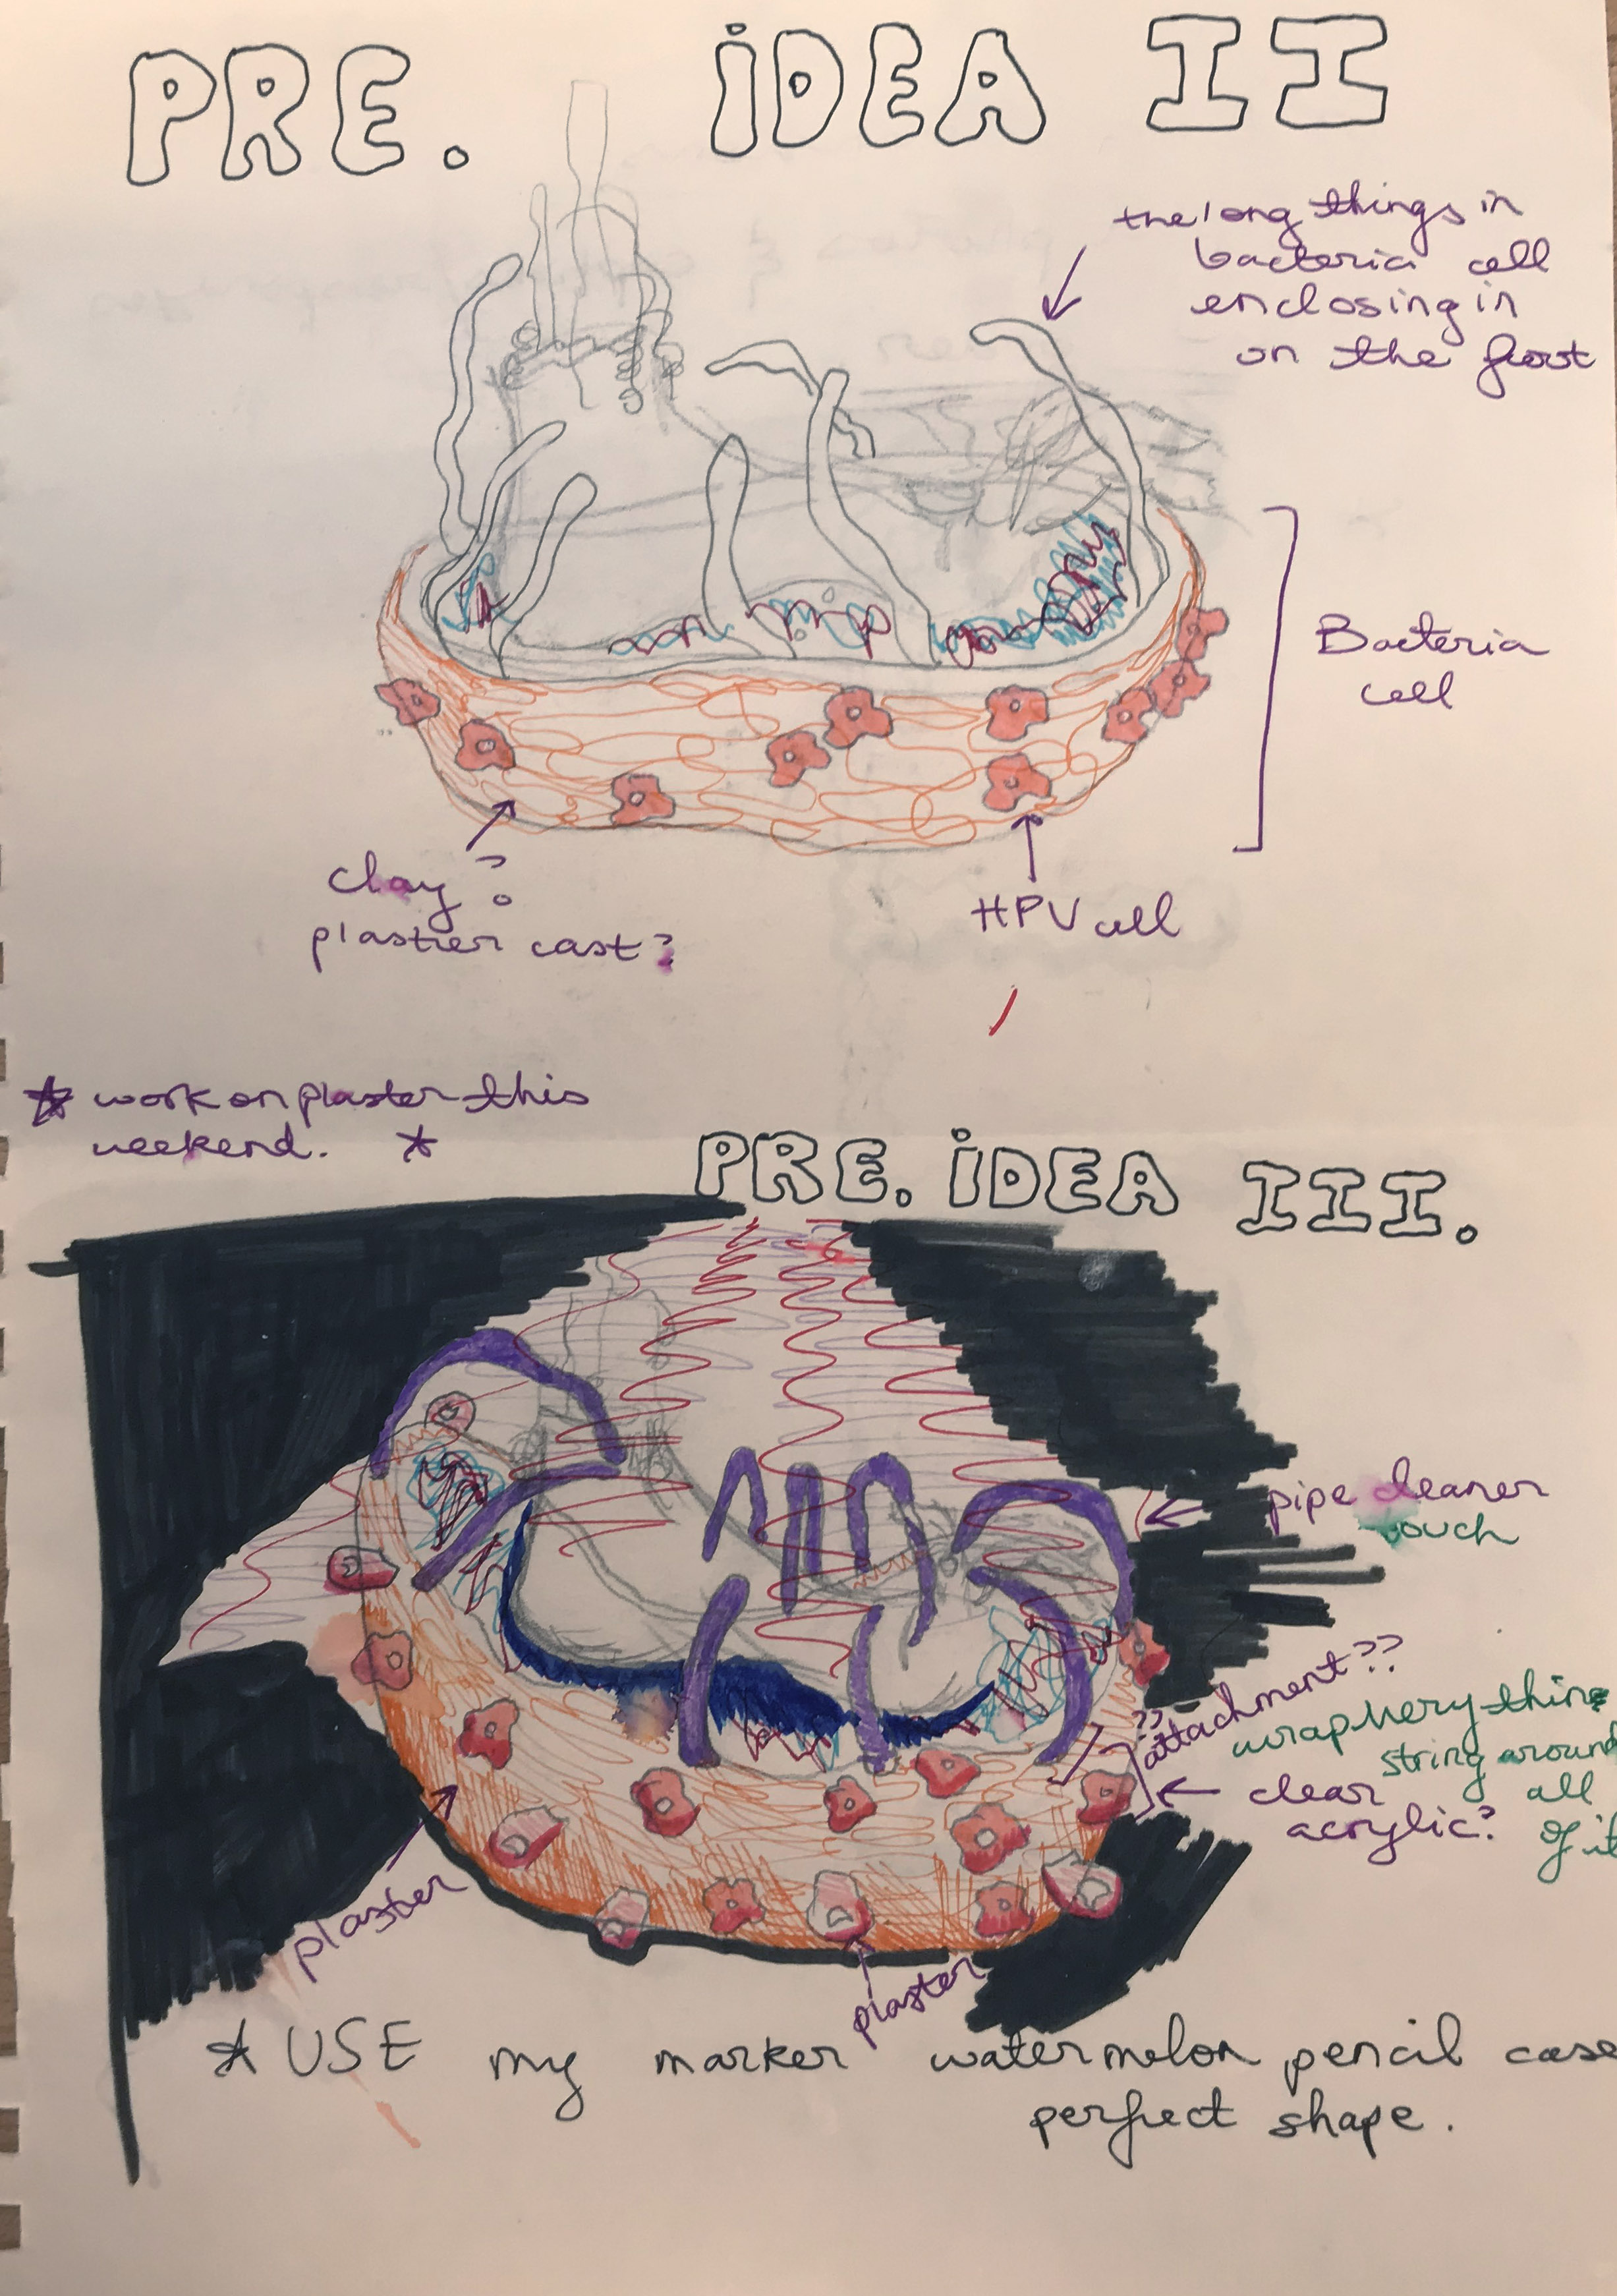 PRE. iDEA II
the long things in
bacteria cell
enclosing in
on the foot
Bacteria
cell
clay?
plaster cast?
HPV cell
* work on plaster this
weekend. *
PRE. iDEA III.
pipe cleaner
??
attachment??
wrap very thin
string around
all
of it
clear
acrylic?
plaster
plaster
* USE my marker watermelon pencil case
perfect shape.